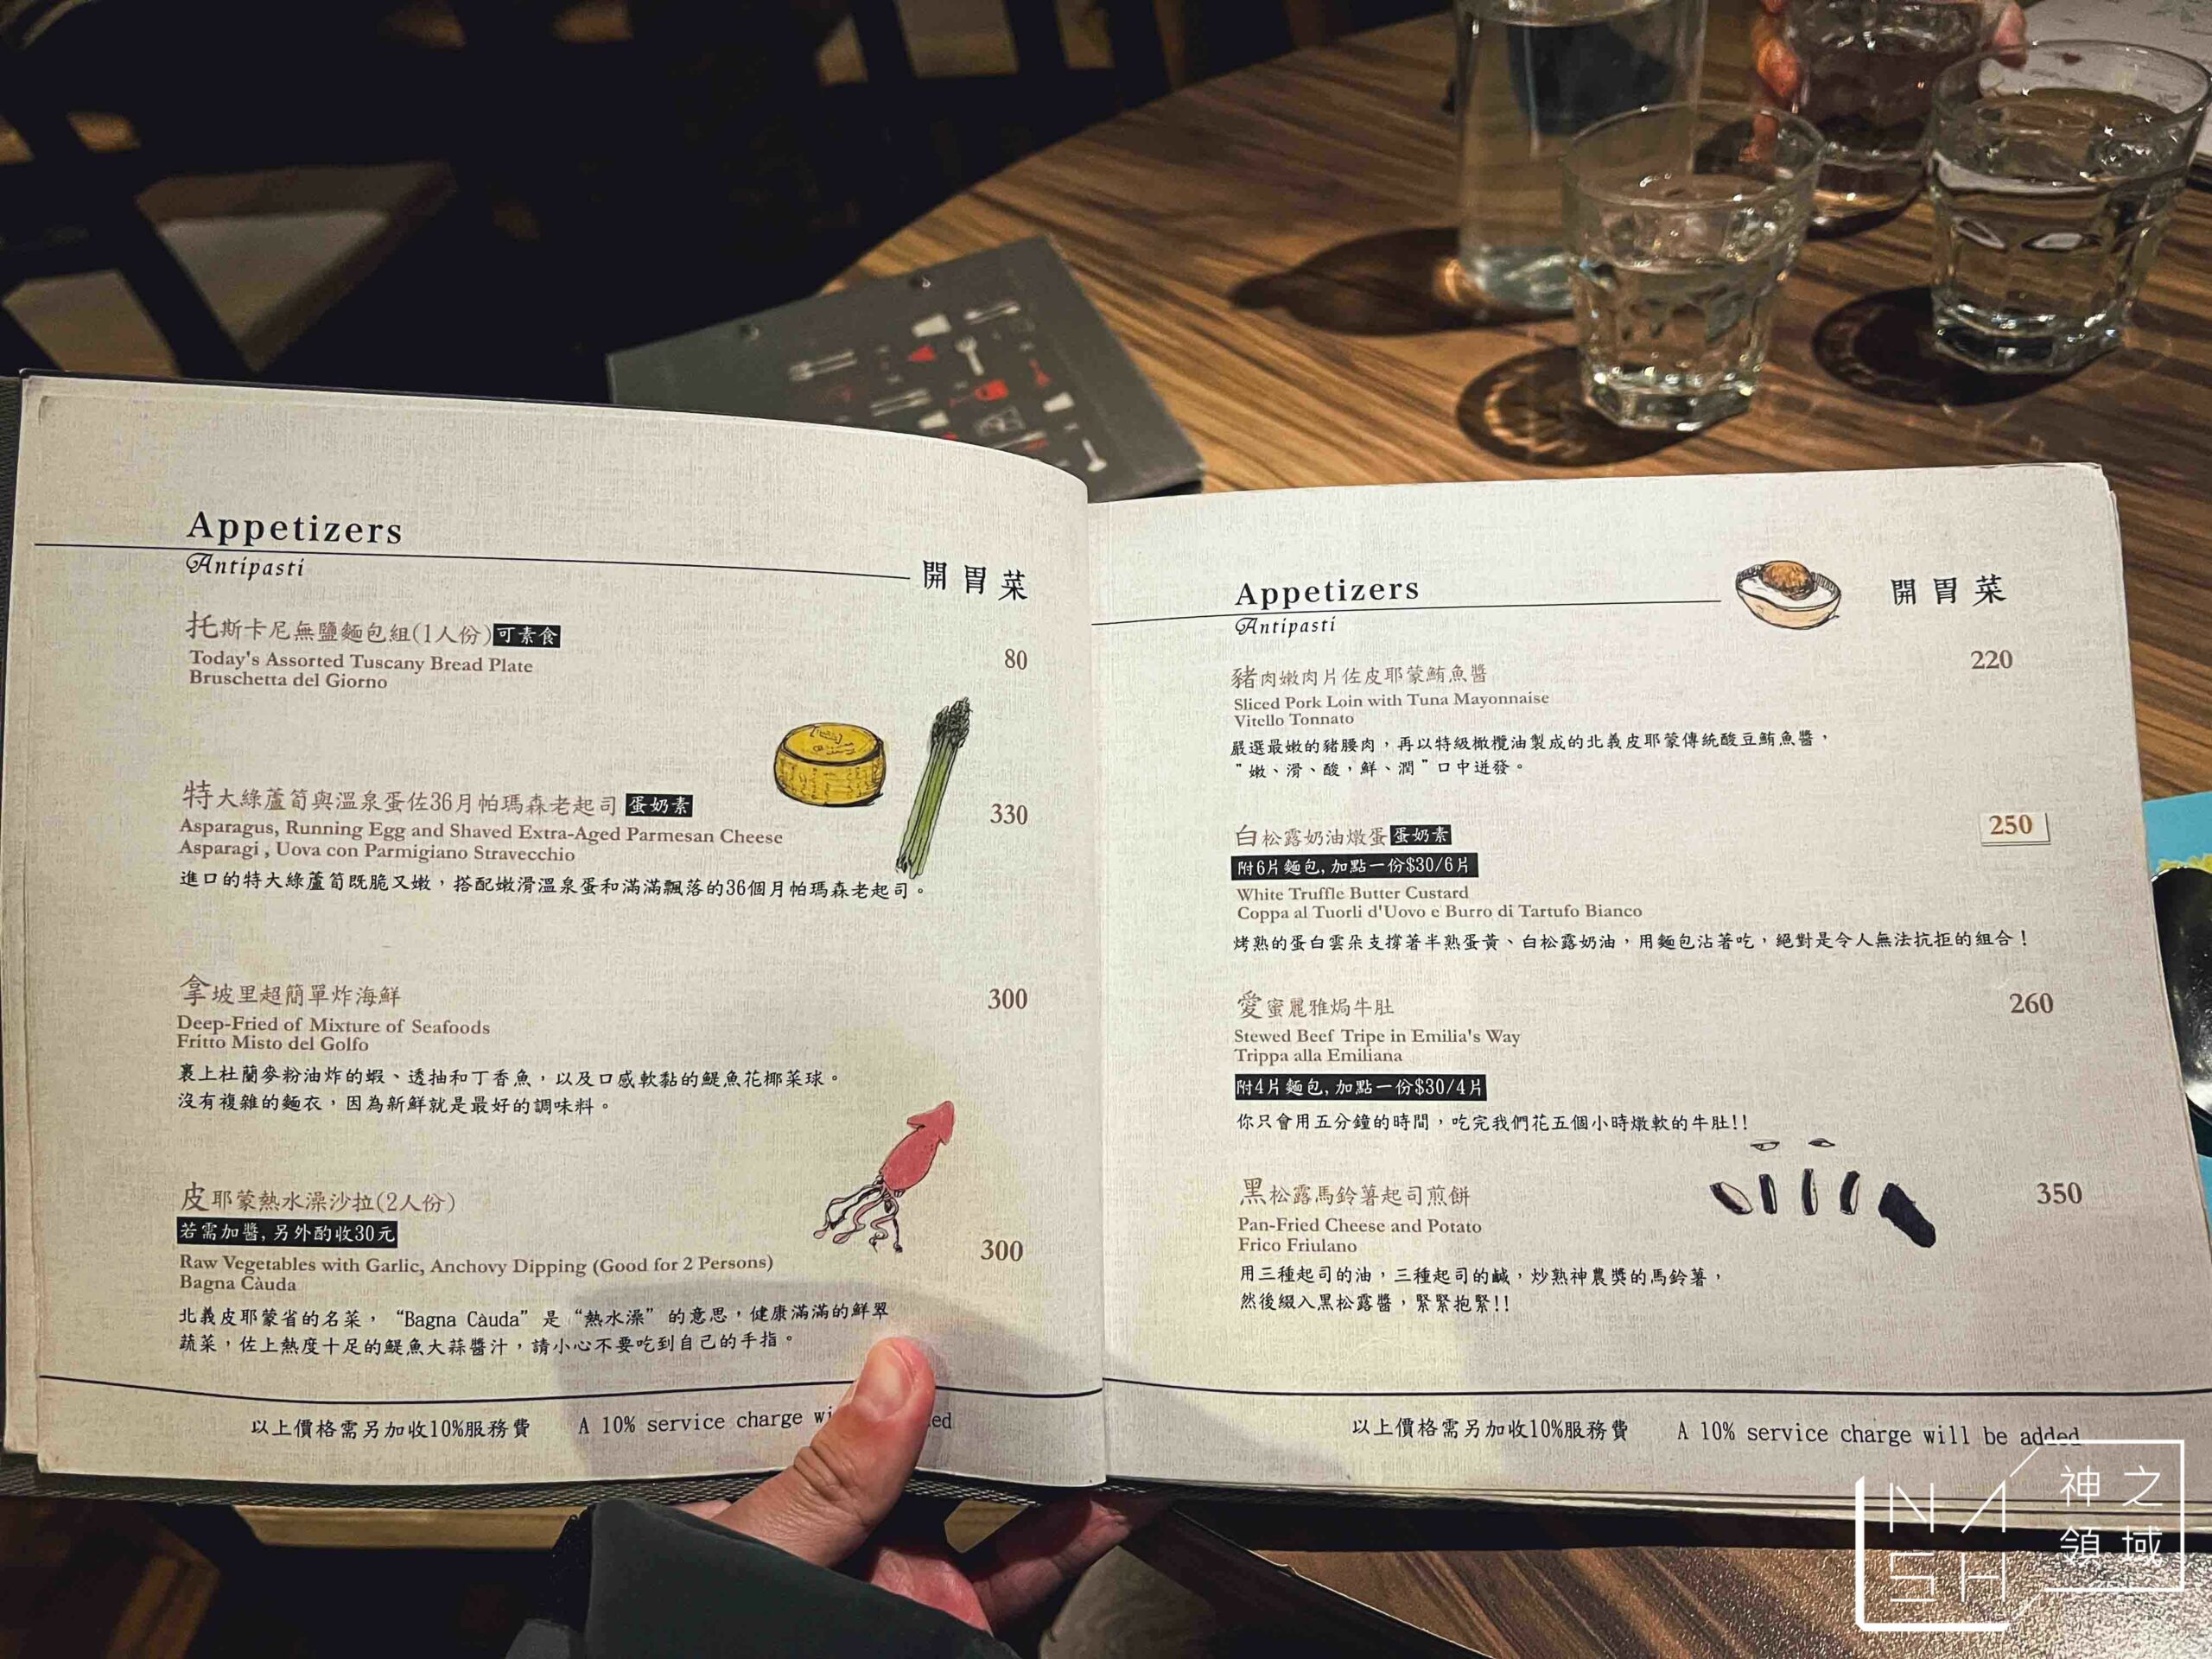 Appetizers
Antipasti
開胃菜
托斯卡尼無鹽麵包組(1人份) 可素食
80
Today's Assorted Tuscany Bread Plate
Bruschetta del Giorno
特大綠蘆筍與溫泉蛋佐36月帕瑪森老起司 蛋奶素
330
Asparagus, Running Egg and Shaved Extra-Aged Parmesan Cheese
Asparagi , Uova con Parmigiano Stravecchio
進口的特大綠蘆筍既脆又嫩，搭配嫩滑溫泉蛋和滿滿飄落的36個月帕瑪森老起司。
拿坡里超簡單炸海鮮
300
Deep-Fried of Mixture of Seafoods
Fritto Misto del Golfo
裹上杜蘭麥粉油炸的蝦、透抽和丁香魚，以及口感軟黏的鯷魚花椰菜球。
沒有複雜的麵衣，因為新鮮就是最好的調味料。
皮耶蒙熱水澡沙拉(2人份)
若需加醬,另外酌收30元
300
Raw Vegetables with Garlic, Anchovy Dipping (Good for 2 Persons)
Bagna Càuda
北義皮耶蒙省的名菜，“Bagna Càuda”是“熱水澡”的意思，健康滿滿的鮮翠
蔬菜，佐上熱度十足的鯷魚大蒜醬汁，請小心不要吃到自己的手指。
以上價格需另加收10%服務費 A 10% service charge
Appetizers
Antipasti
開胃菜
豬肉嫩肉片佐皮耶蒙鮪魚醬
220
Sliced Pork Loin with Tuna Mayonnaise
Vitello Tonnato
嚴選最嫩的豬腰肉，再以特級橄欖油製成的北義皮耶蒙傳統酸豆鮪魚醬，
”嫩、滑、酸，鮮、潤”口中迸發。
白松露奶油燉蛋 蛋奶素
250
附6片麵包,加點一份$30/6片
White Truffle Butter Custard
Coppa al Tuorli d'Uovo e Burro di Tartufo Bianco
烤熟的蛋白雲朵支撐著半熟蛋黃、白松露奶油，用麵包沾著吃，絕對是令人無法抗拒的組合！
愛蜜麗雅焗牛肚
260
Stewed Beef Tripe in Emilia's Way
Trippa alla Emiliana
附4片麵包,加點一份$30/4片
你只會用五分鐘的時間，吃完我們花五個小時燉軟的牛肚!!
黑松露馬鈴薯起司煎餅
350
Pan-Fried Cheese and Potato
Frico Friulano
用三種起司的油，三種起司的鹹，炒熟神農獎的馬鈴薯，
然後綴入黑松露醬，緊緊抱緊!!
以上價格需另加收10%服務費 A 10% service charge will be added
NASH
神之
領域